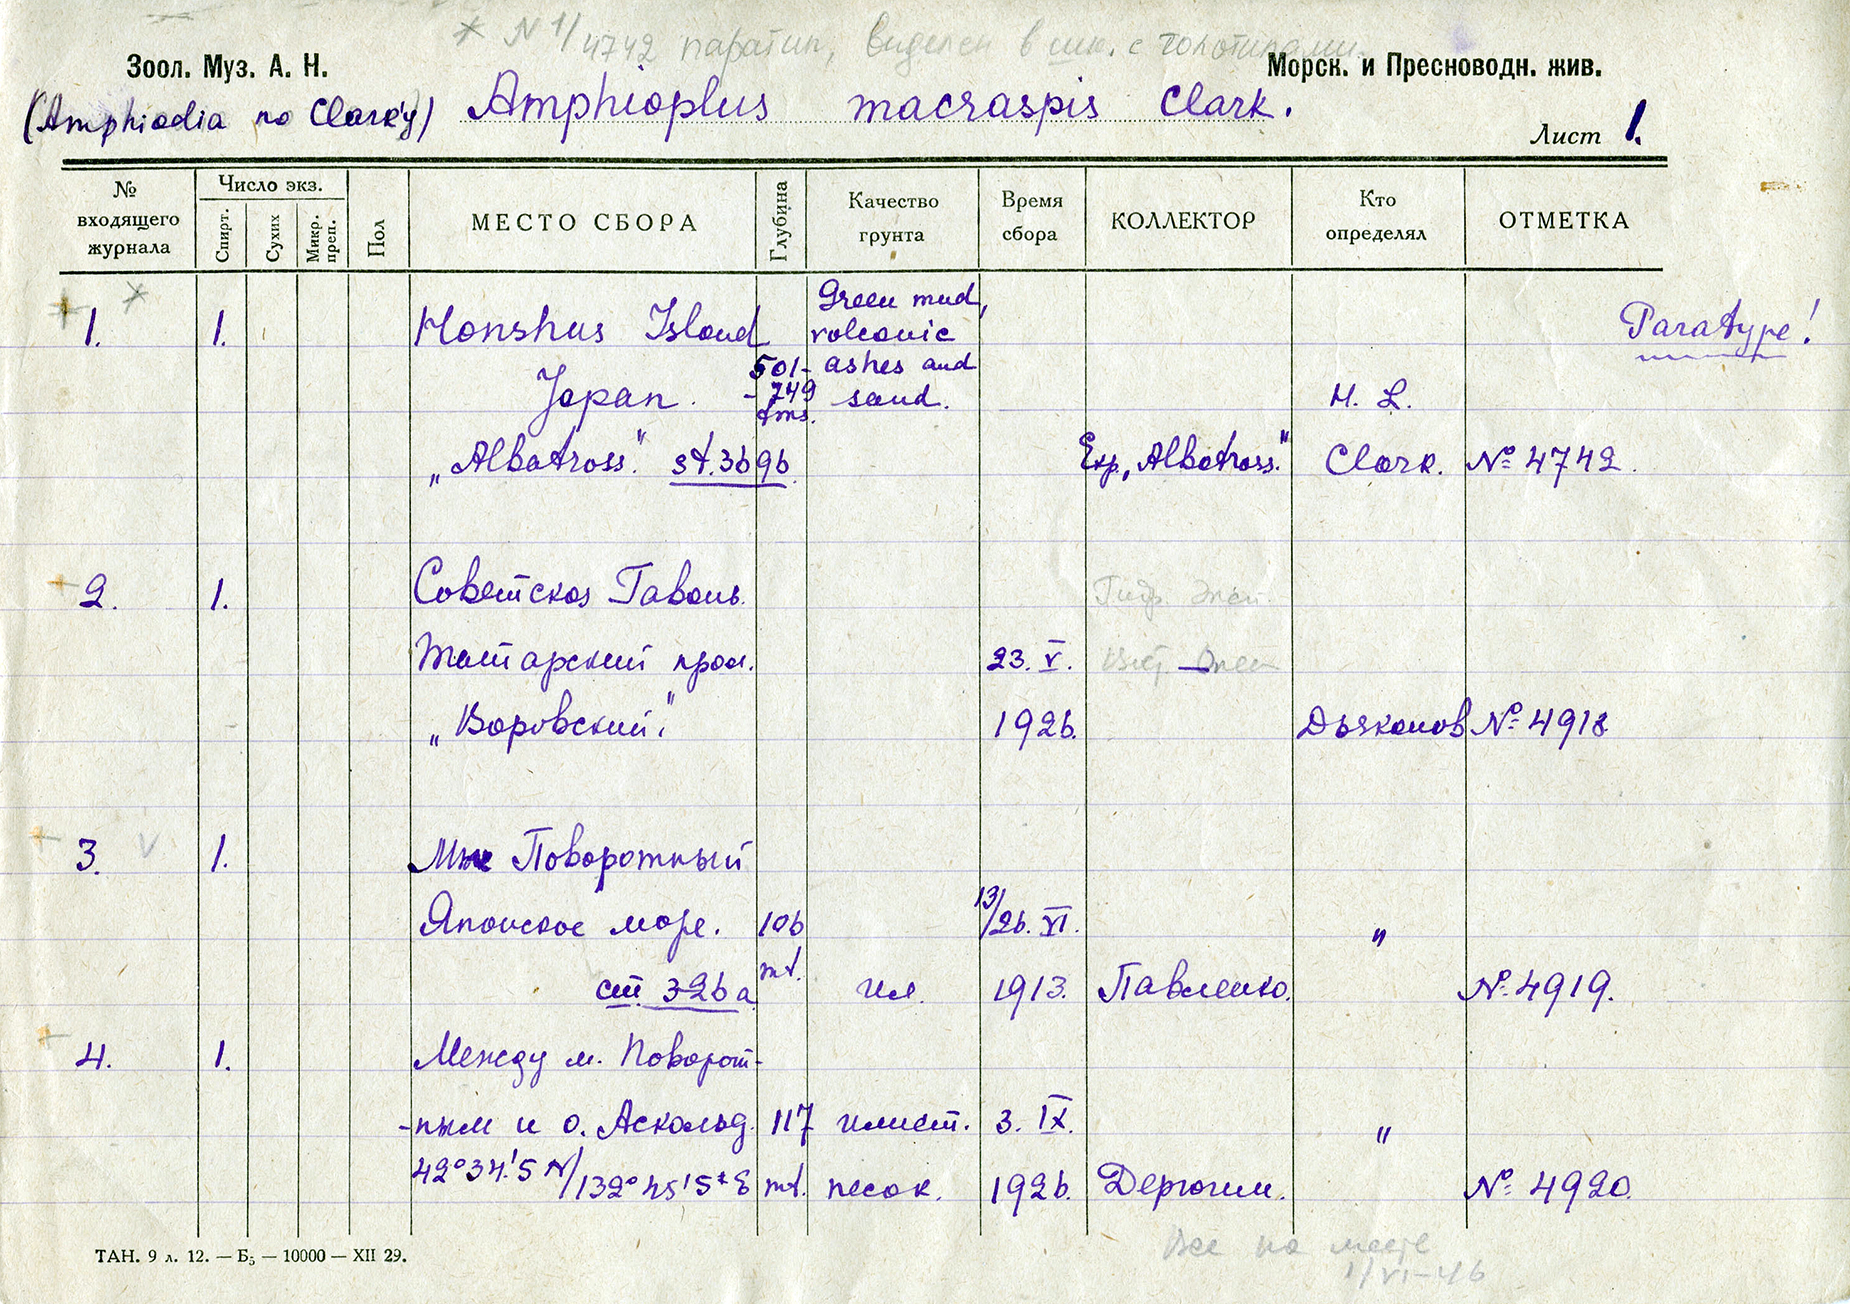 * N 1/4742 паратип, выделен в шк. с голотипами.
Зоол. Муз. А. Н.
Морск. и Пресноводн. жив.
(Amphiodia по Clark'у) Amphioplus macraspis Clark.
Лист 1.
№ входящего журнала
Число экз.
Спирт.
Сухих
Микр. преп.
Пол
МЕСТО СБОРА
Глубина
Качество грунта
Время сбора
КОЛЛЕКТОР
Кто определял
ОТМЕТКА
Green mud,
1. * 1. Honshus Island volcanic Paratype!
501- ashes and
Japan. -749 sand. H. L.
fms.
„Albatross." st. 3696 Exp. „Albatross." Clark. № 4742.
2. 1. Советская Гавань.
Татарский прол. 23. V.
„Воровский." 1926. Дьяконов № 4918
3. V 1. Мыс Поворотный
Японское море. 106 13/26. VI. "
mt.
ст 326a ил. 1913. Павленко. № 4919.
4. 1. Между м. Поворот-
-ным и о. Аскольд. 117 илист. 3. IX. "
42°34!5 N/132° 45'5" E mt. песок. 1926. Дерюгин. № 4920.
ТАН. 9 л. 12. — Б5 — 10000 — XII 29.
Все на месте
1/VI-46